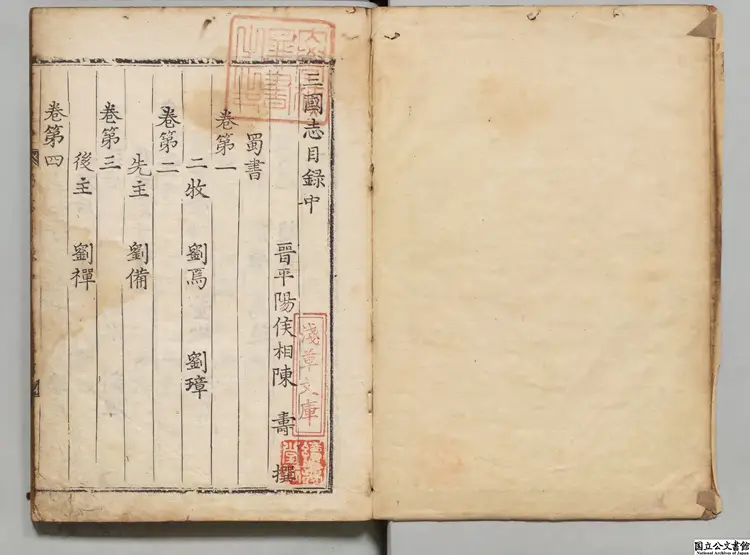 三國志目錄中
晉平陽侯相陳 壽 撰
蜀書
卷第一
二牧 劉焉 劉璋
卷第二
先主 劉備
卷第三
後主 劉禪
卷第四
淺草文庫
国立公文書館
National Archives of Japan